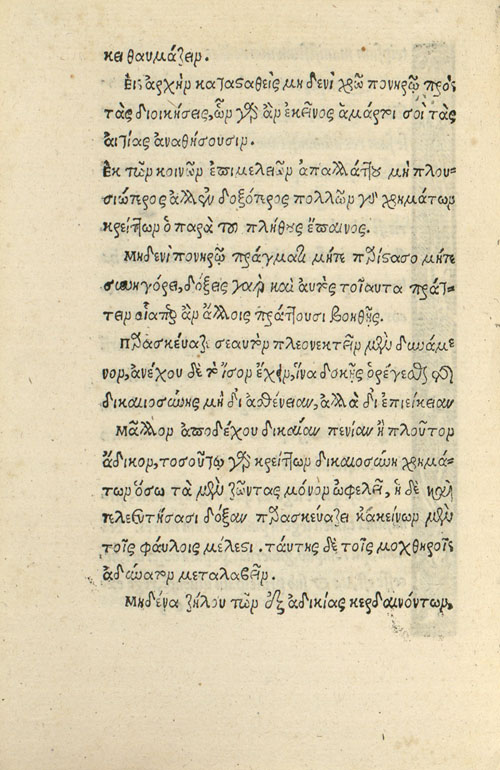 κει θαυμάζειν.
Εἰς ἀρχὴν κατασταθεὶς μηδενὶ χρῶ πονηρῷ πρὸς
τὰς διοικήσεις, ὧν γὰρ ἂν ἐκεῖνος ἁμάρτοι σοὶ τὰς
αἰτίας ἀναθήσουσιν.
Ἐκ τῶν κοινῶν ἐπιμελειῶν ἀπαλλάττου μὴ πλου-
σιώτερος ἀλλ' ἐνδοξότερος πολλῶν γὰρ χρημάτων
κρείττων ὁ παρὰ τοῦ πλήθους ἔπαινος.
Μηδενὶ πονηρῷ πράγματι μήτε παρίστασο μήτε
συνηγόρει, δόξεις γὰρ καὶ αὐτὸς τοιαῦτα πράτ-
τειν οἷάπερ ἂν ἄλλοις πράττουσι βοηθῇς.
Παρασκεύαζε σεαυτὸν πλεονεκτεῖν μὲν δυνάμε
νον, ἀνέχου δὲ τὸ ἴσον ἔχων, ἵνα δοκῇς ὀρέγεσθαι τῆς
δικαιοσύνης μὴ δι' ἀσθένειαν, ἀλλὰ δι' ἐπιείκειαν
Μᾶλλον ἀποδέχου δικαίαν πενίαν ἢ πλοῦτον
ἄδικον, τοσούτῳ γὰρ κρείττων δικαιοσύνη χρημά-
των ὅσῳ τὰ μὲν ζῶντας μόνον ὠφελεῖ, ἡ δὲ καὶ
τελευτήσασι δόξαν παρασκευάζει κἀκείνων μὲν
τοῖς φαύλοις μέτεστι. ταύτης δὲ τοῖς μοχθηροῖς
ἀδύνατον μεταλαβεῖν.
Μηδένα ζήλου τῶν ἐξ ἀδικίας κερδαινόντων,